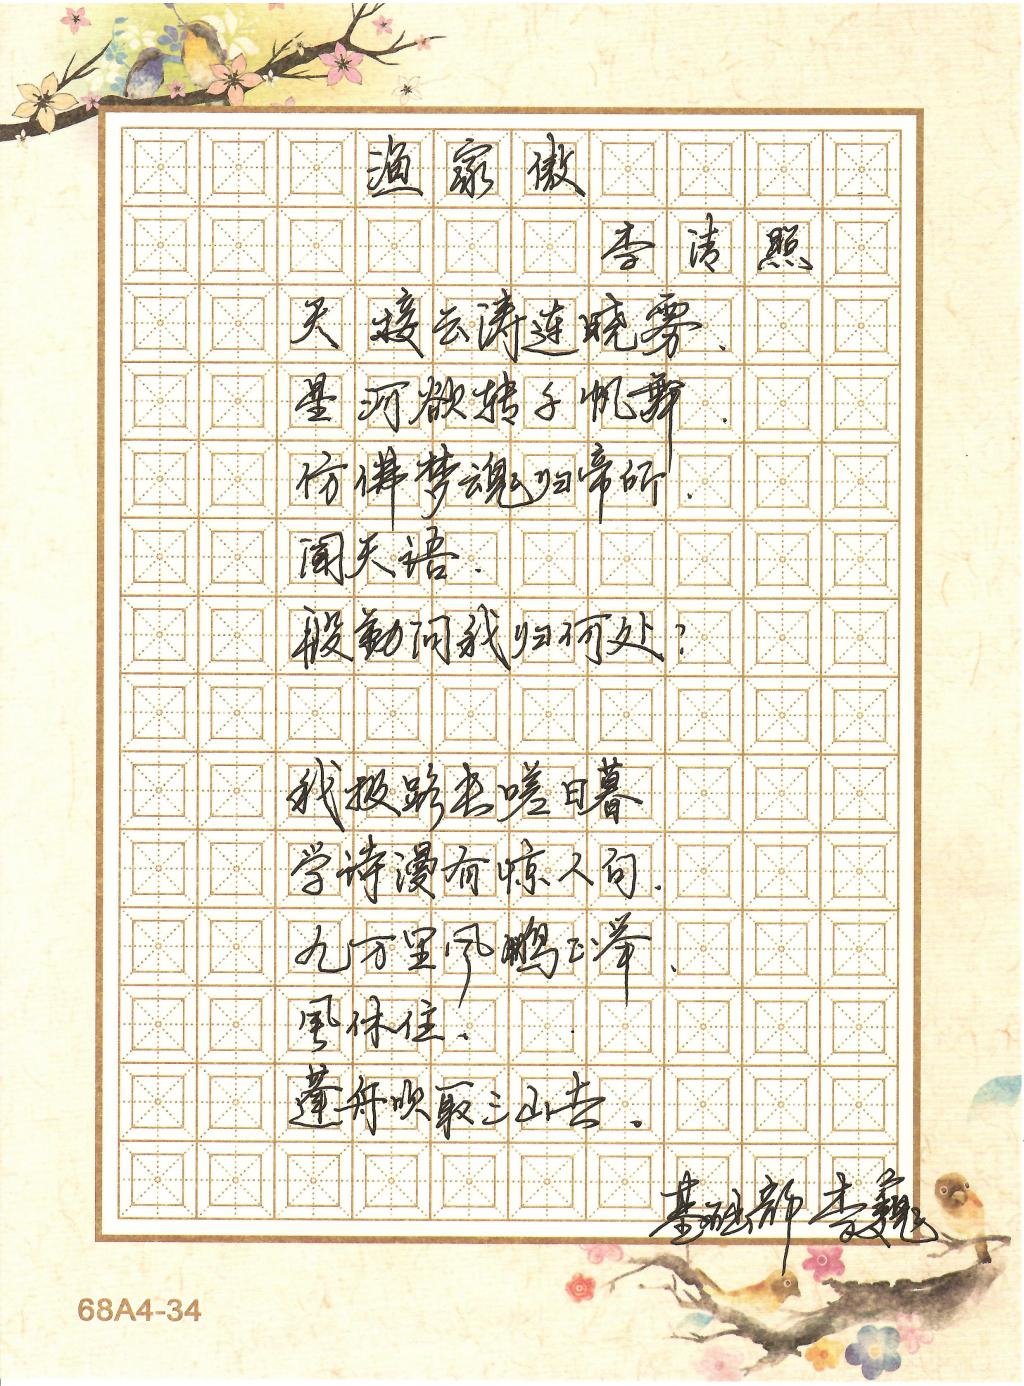 渔家傲
李清照
天接云涛连晓雾.
星河欲转千帆舞.
仿佛梦魂归帝所.
闻天语.
殷勤问我归何处?
我报路长嗟日暮
学诗漫有惊人句.
九万里风鹏正举.
風休住.
蓬舟吹取三山去.
基础部 李巍
68A4-34